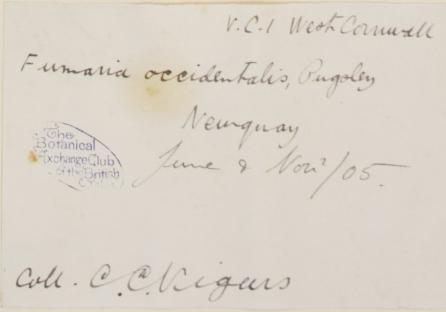 V.C.1 West Cornwall
Fumaria occidentalis, Pugsley
Newquay
The
Botanical
Exchange Club
of the British
June & Novr/05.
Coll. C.C. Vigurs